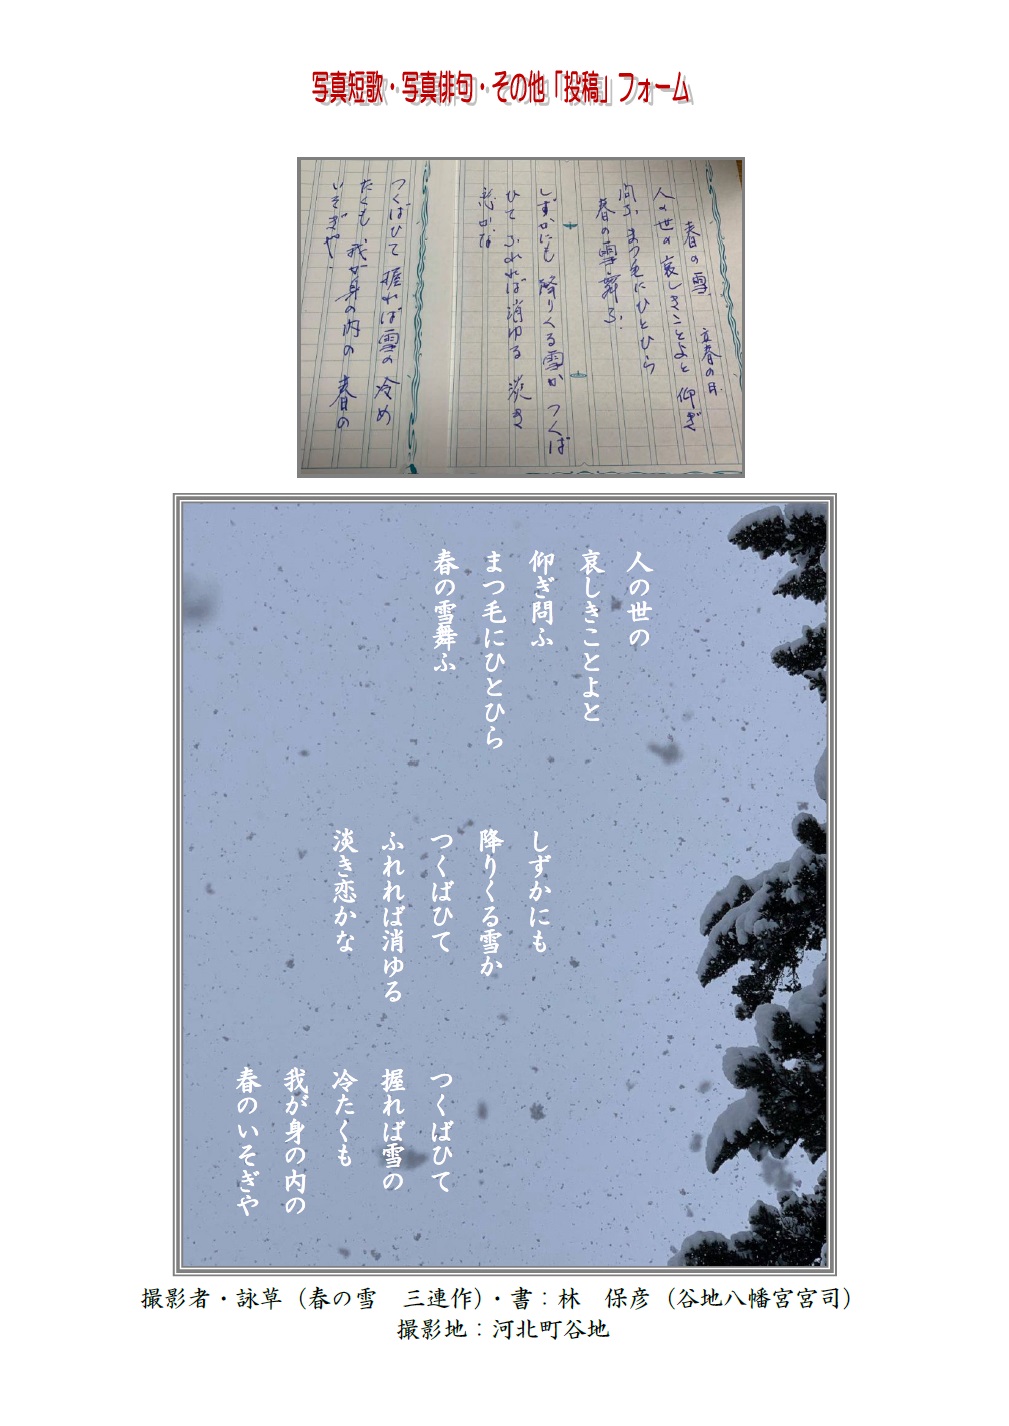 写真短歌・写真俳句・その他「投稿」フォーム
春の雪　立春の日
人の世の哀しきことよと 仰ぎ
問ふ まつ毛にひとひら
春の雪舞ふ
しずかにも 降りくる雪か つくば
ひて ふれれば消ゆる 淡き
恋かな
つくばひて 握れば雪の 冷め
たくも 我が身の内の 春の
いそぎや
人の世の
哀しきことよと
仰ぎ問ふ
まつ毛にひとひら
春の雪舞ふ
しずかにも
降りくる雪か
つくばひて
ふれれば消ゆる
淡き恋かな
つくばひて
握れば雪の
冷たくも
我が身の内の
春のいそぎや
撮影者・詠草（春の雪　三連作）・書：林　保彦（谷地八幡宮宮司）
撮影地：河北町谷地